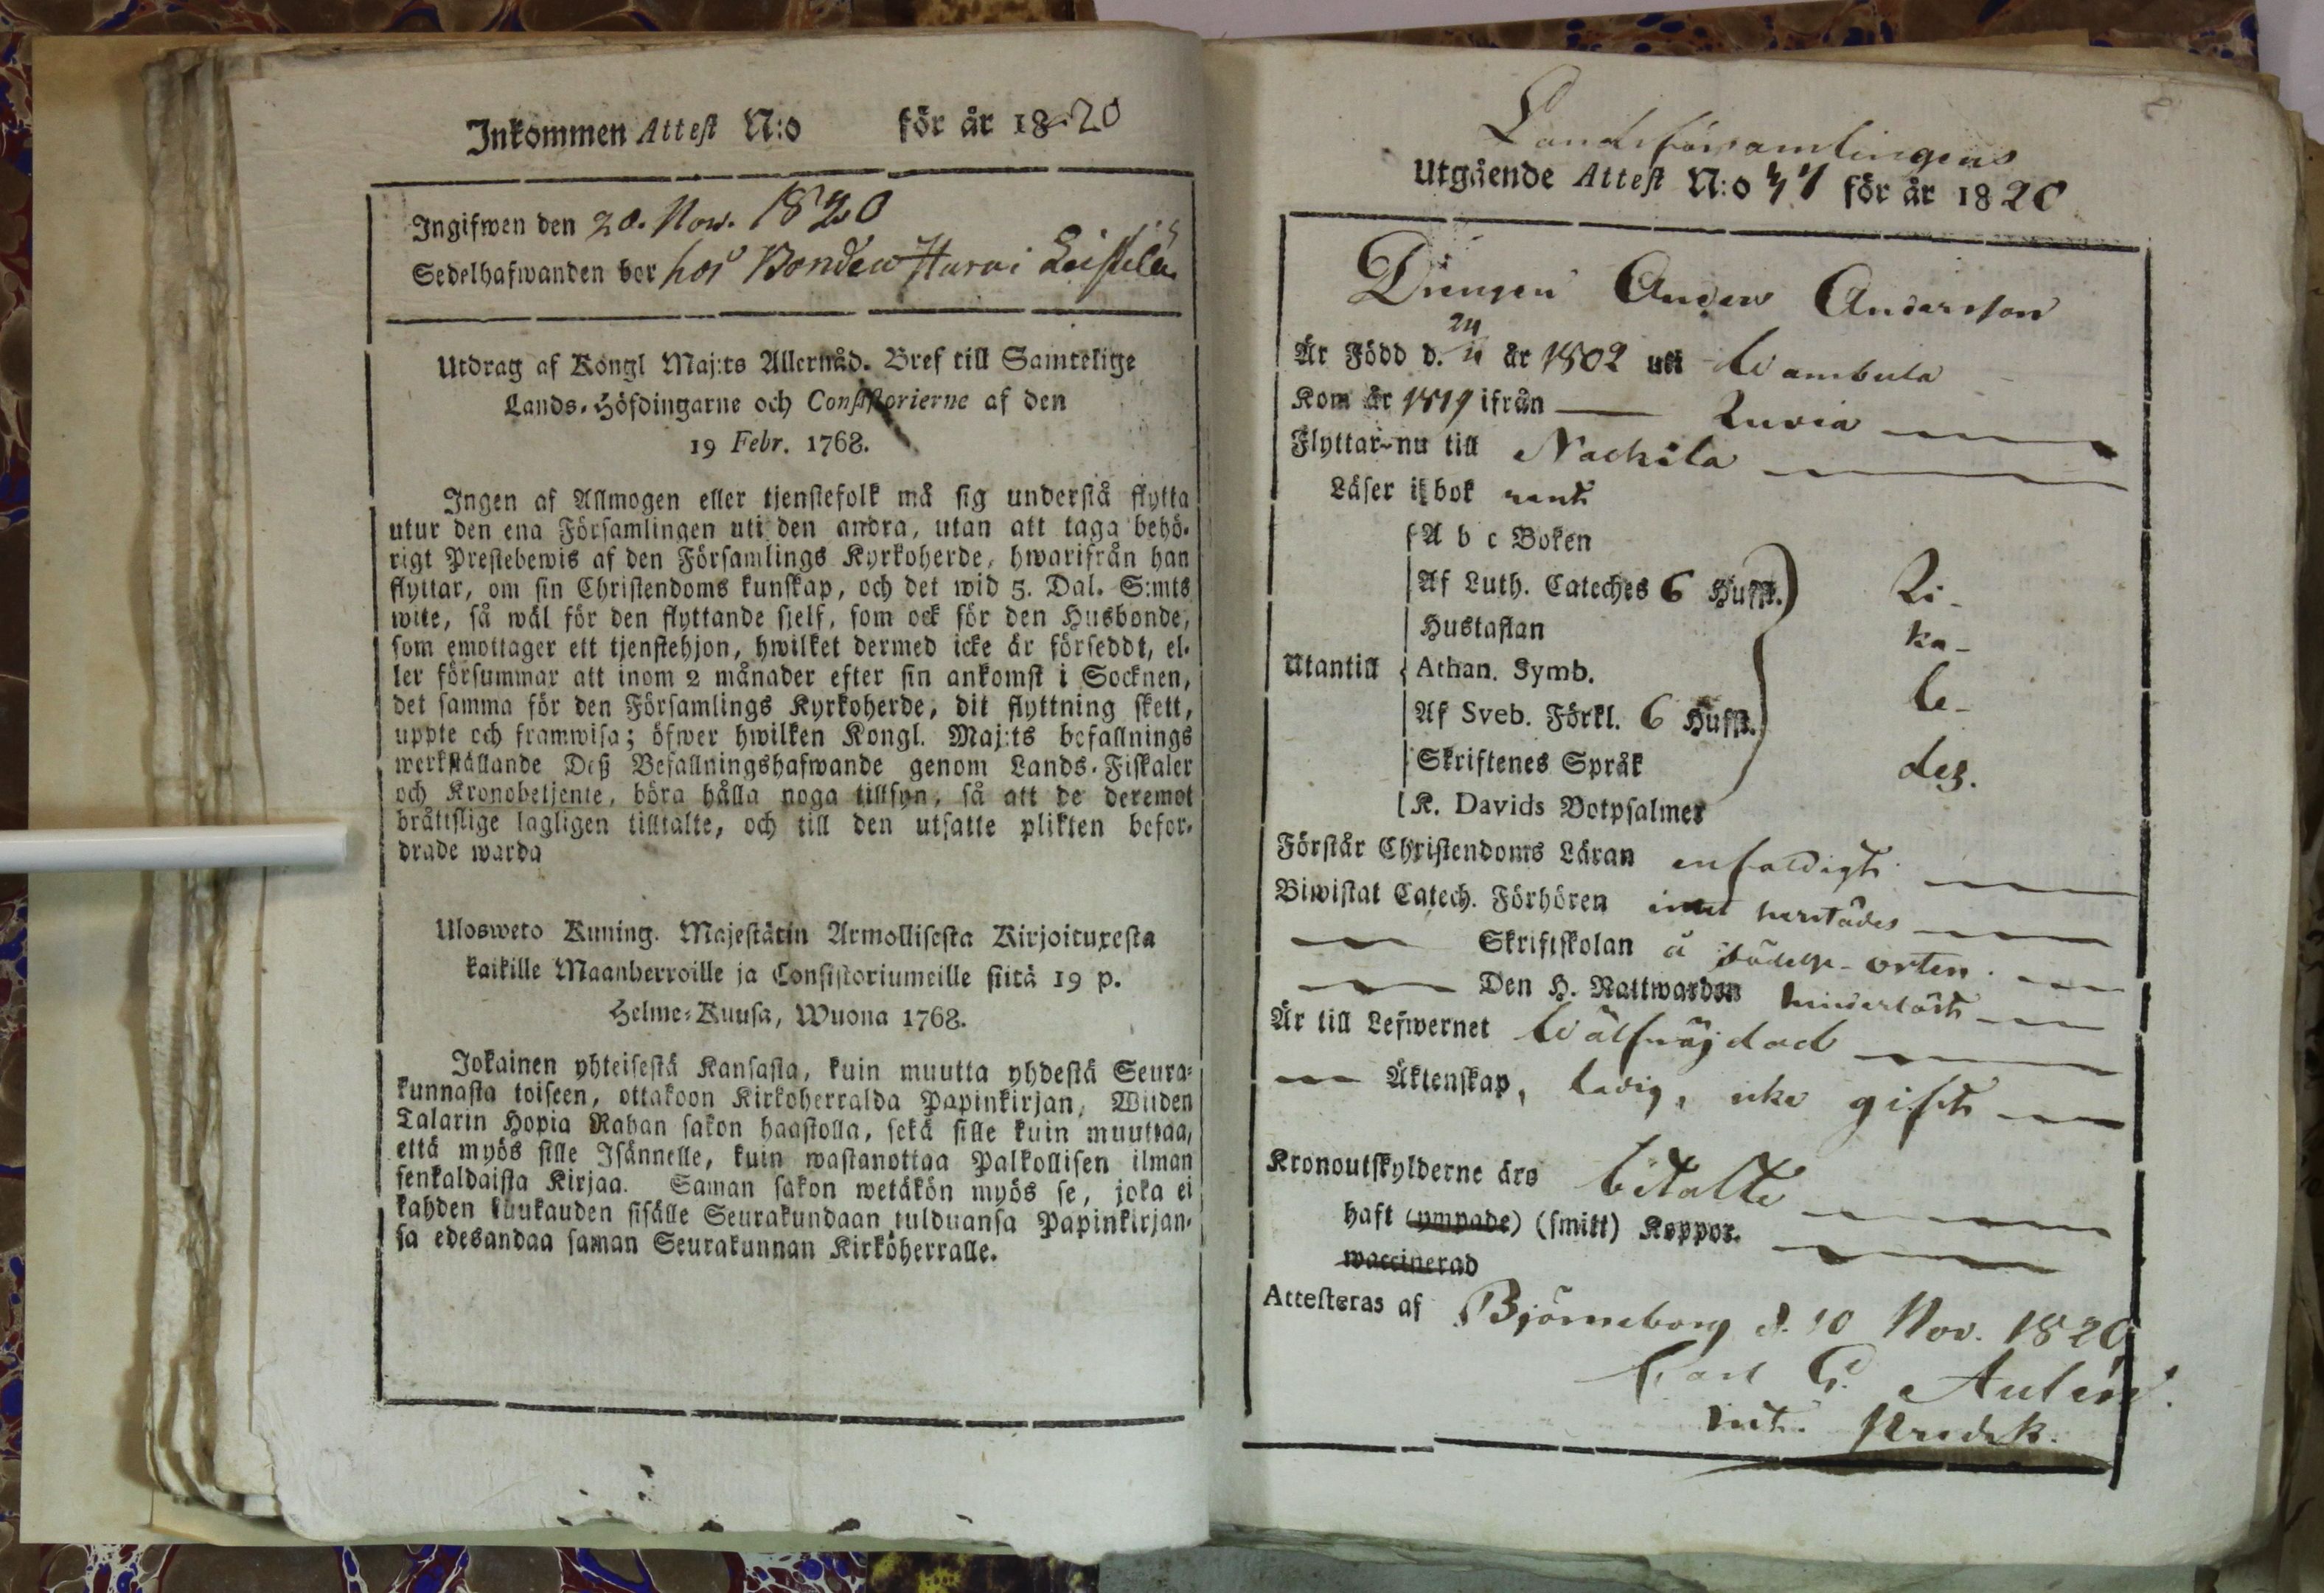 Inkommen Attest N:o för år 1820
Ingifwen den 20. Nov. 1820
Sedelhafwanden bor hos Bonden
Utdrag af Kongl Maj:ts Allernåd. Bref till Samtelige
Lands-Höfdingarne och Consistorierne af den
19 Febr. 1768.
Ingen af Allmogen eller tjenstefolk må sig understå flytta
utur den ena Församlingen uti den andra, utan att taga behö-
rigt Prestebewis af den Församlings Kyrkoherde, hwarifrån han
flyttar, om sin Christendoms kunskap, och det wid 5. Dal. S:mts
wite, så wäl för den flyttande sjelf, som ock för den Husbonde,
som emottager ett tjenstehjon, hwilket dermed icke är förseddt, el-
ler försummar att inom 2 månader efter sin ankomst i Socknen,
det samma för den Församlings Kyrkoherde, dit flyttning skett,
uppte och framwisa; öfwer hwilken Kongl. Maj:ts befallnings
werkställande Deß Befallningshafwande genom Lands-Fiskaler
och Kronobetjente, böra hålla noga tillsyn, så att de deremot
bråttslige lagligen tilltalte, och till den utsatte plikten befor-
drade warda
Ulosweto Kuning. Majestätin Armollisesta Kirjoituxesta
kaikille Maanherroille ja Consistoriumeille siitä 19 p.
Helme-Kuusa, Wuona 1768.
Jokainen yhteisestä Kansasta, kuin muutta yhdestä Seura-
kunnasta toiseen, ottakoon Kirkoherralda Papinkirjan, Wiiden
Talarin Hopia Rahan sakon haastolla, sekä sille kuin muuttaa,
että myös sille Isännelle, kuin wastanottaa Palkollisen ilman
senkaldaista Kirjaa. Saman sakon wetäkön myös se, joka ei
kahden kuukauden sisälle Seurakundaan tulduansa Papinkirjan-
sa edesandaa saman Seurakunnan Kirköherralle.
Landsförsamlingens
Utgående Attest N:o för år 1820
Drengen Anders Andersson
24
Är Född d. 11 år 1802 uti Wambula
Kom år 1819 ifrån Luvia
Flyttar nu till Nackila
Läser i bok rent
A b c Boken
Af Luth. Cateches 6 Hufst. Li-
Hustaflan ka-
Utantill Athan. Symb. le-
Af Sveb. Förkl. 6 Hufst.
Skriftenes Språk des.
K. Davids Botpsalmer
Förstår Christendoms Läran enfaldigt
Biwistat Catech. Förhören
Skriftskolan å orten.
Den H. Nattwarden hinderlöst
Är till Lefwernet Wälfräjdad
Äktenskap, ledig, icke gift
Kronoutskylderne äro betalte
haft (ympade) (smitt) Koppor.
waccinerad
Attesteras af Björneborg d. 10 Nov. 1820
Carl G.